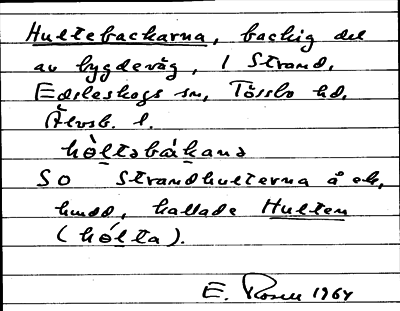 Hultebackarna, backig del
av bygdeväg, i Strand,
Edsleskogs sn, Tössbo hd,
Älvsb. l.
hòltəbákaṇə
SO Strandhulterna å ek.
kallade Hulten
(hólta).
E. Rosell 1964